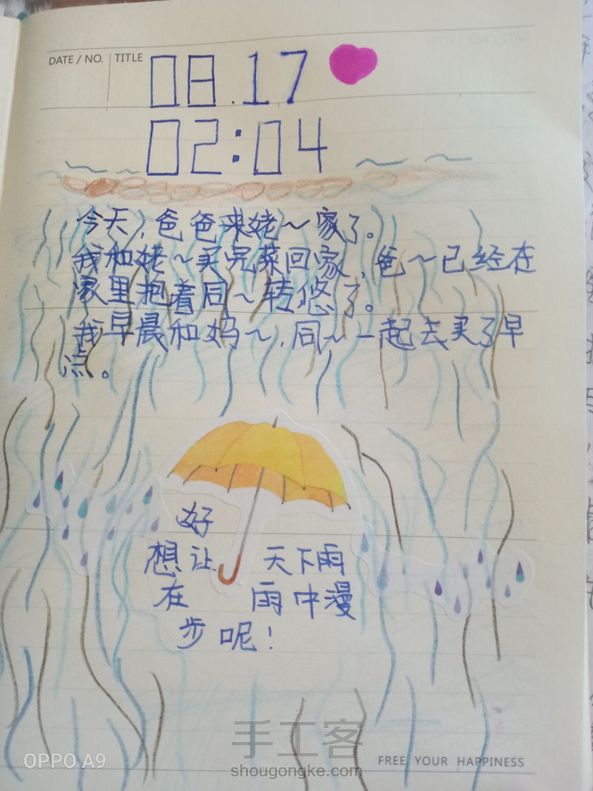 DATE / NO. TITLE
08.17
02:04
今天,爸爸来姥~家了。
我和姥~买完菜回家,爸~已经在
家里抱着同~转悠了。
我早晨和妈~,同~一起去买了早
点。
好
想让 天下雨
在 雨中漫
步呢!
手工客
OPPO A9
shougongke.com
FREE YOUR HAPPINESS